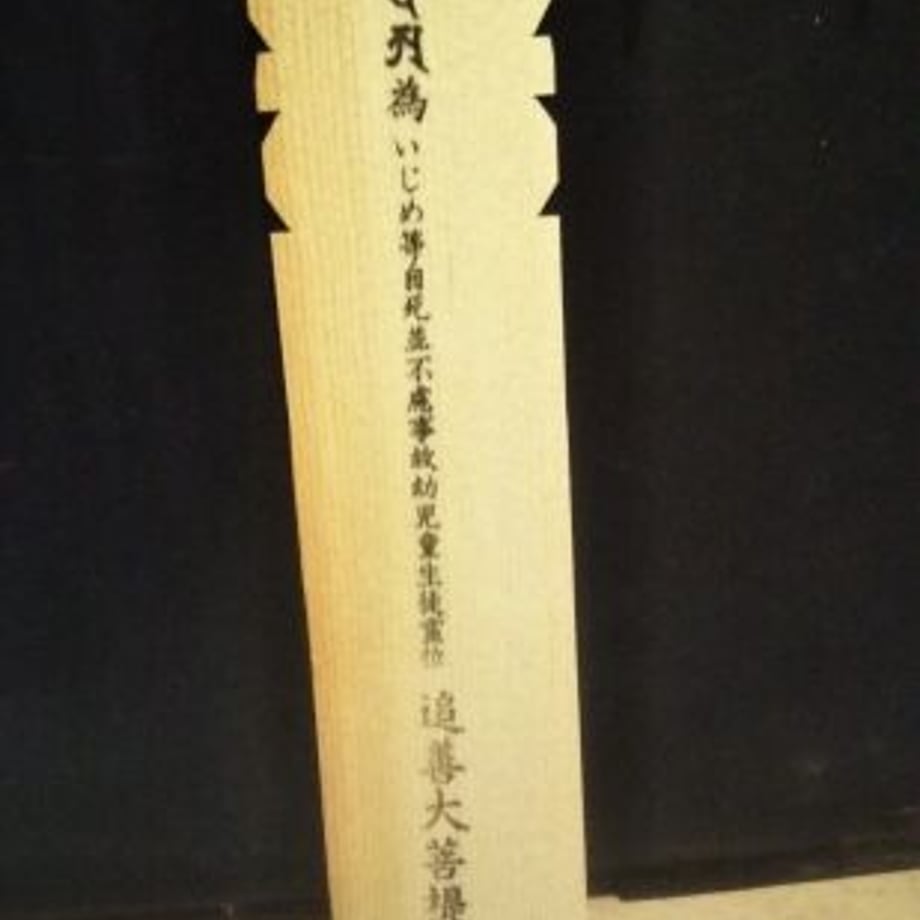 為いじめ等自死並不慮事故幼児童生徒霊位 追善大菩提